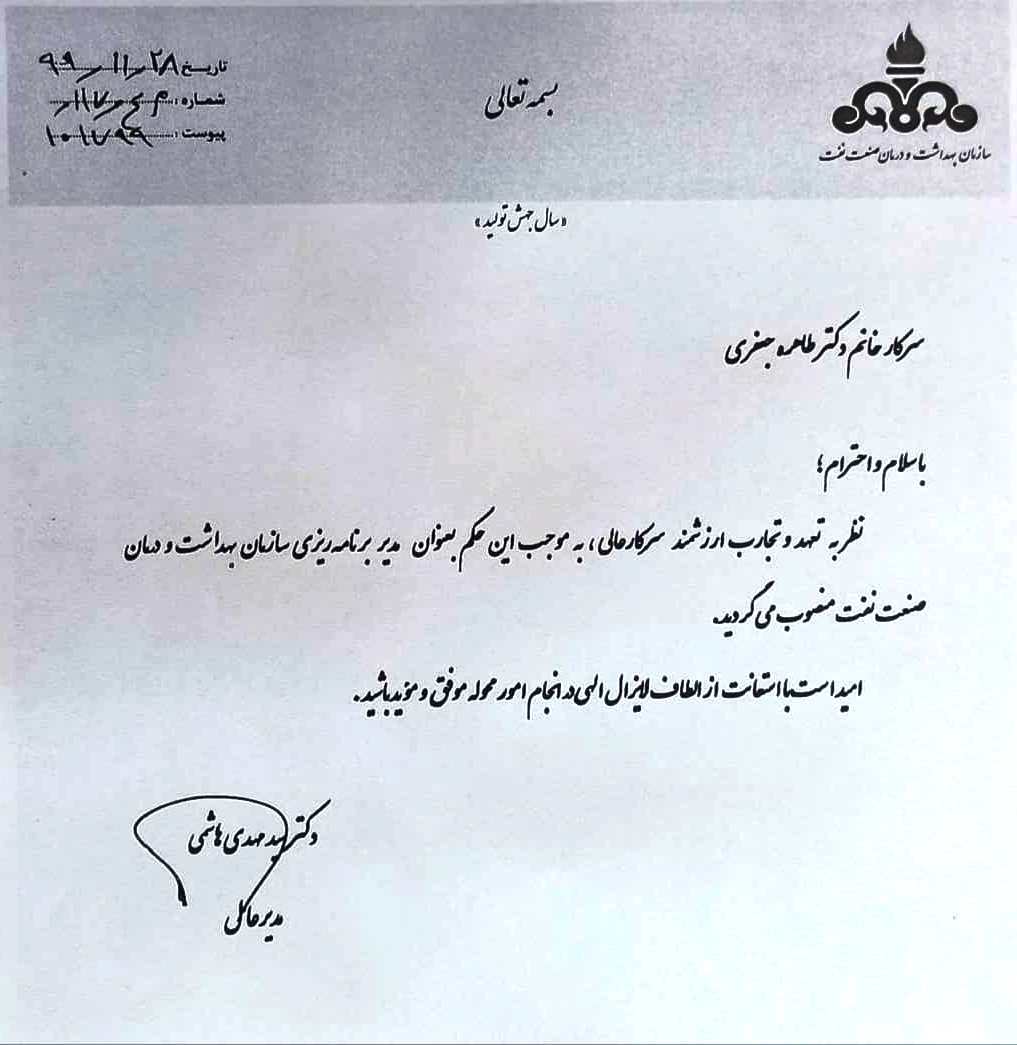 بسمه تعالی
تاریخ: ۹۹/۱۱/۲۸
شماره:
پیوست:
سازمان بهداشت و درمان صنعت نفت
«سال جهش تولید»
سرکار خانم دکتر طاهره جعفری
با سلام و احترام؛
نظر به تعهد و تجارب ارزشمند سرکارعالی، به موجب این حکم بعنوان مدیر برنامه ریزی سازمان بهداشت و درمان
صنعت نفت منصوب می گردید.
امید است با استعانت از الطاف لایزال الهی در انجام امور محوله موفق و موید باشید.
دکتر سید مهدی هاشمی
مدیرعامل